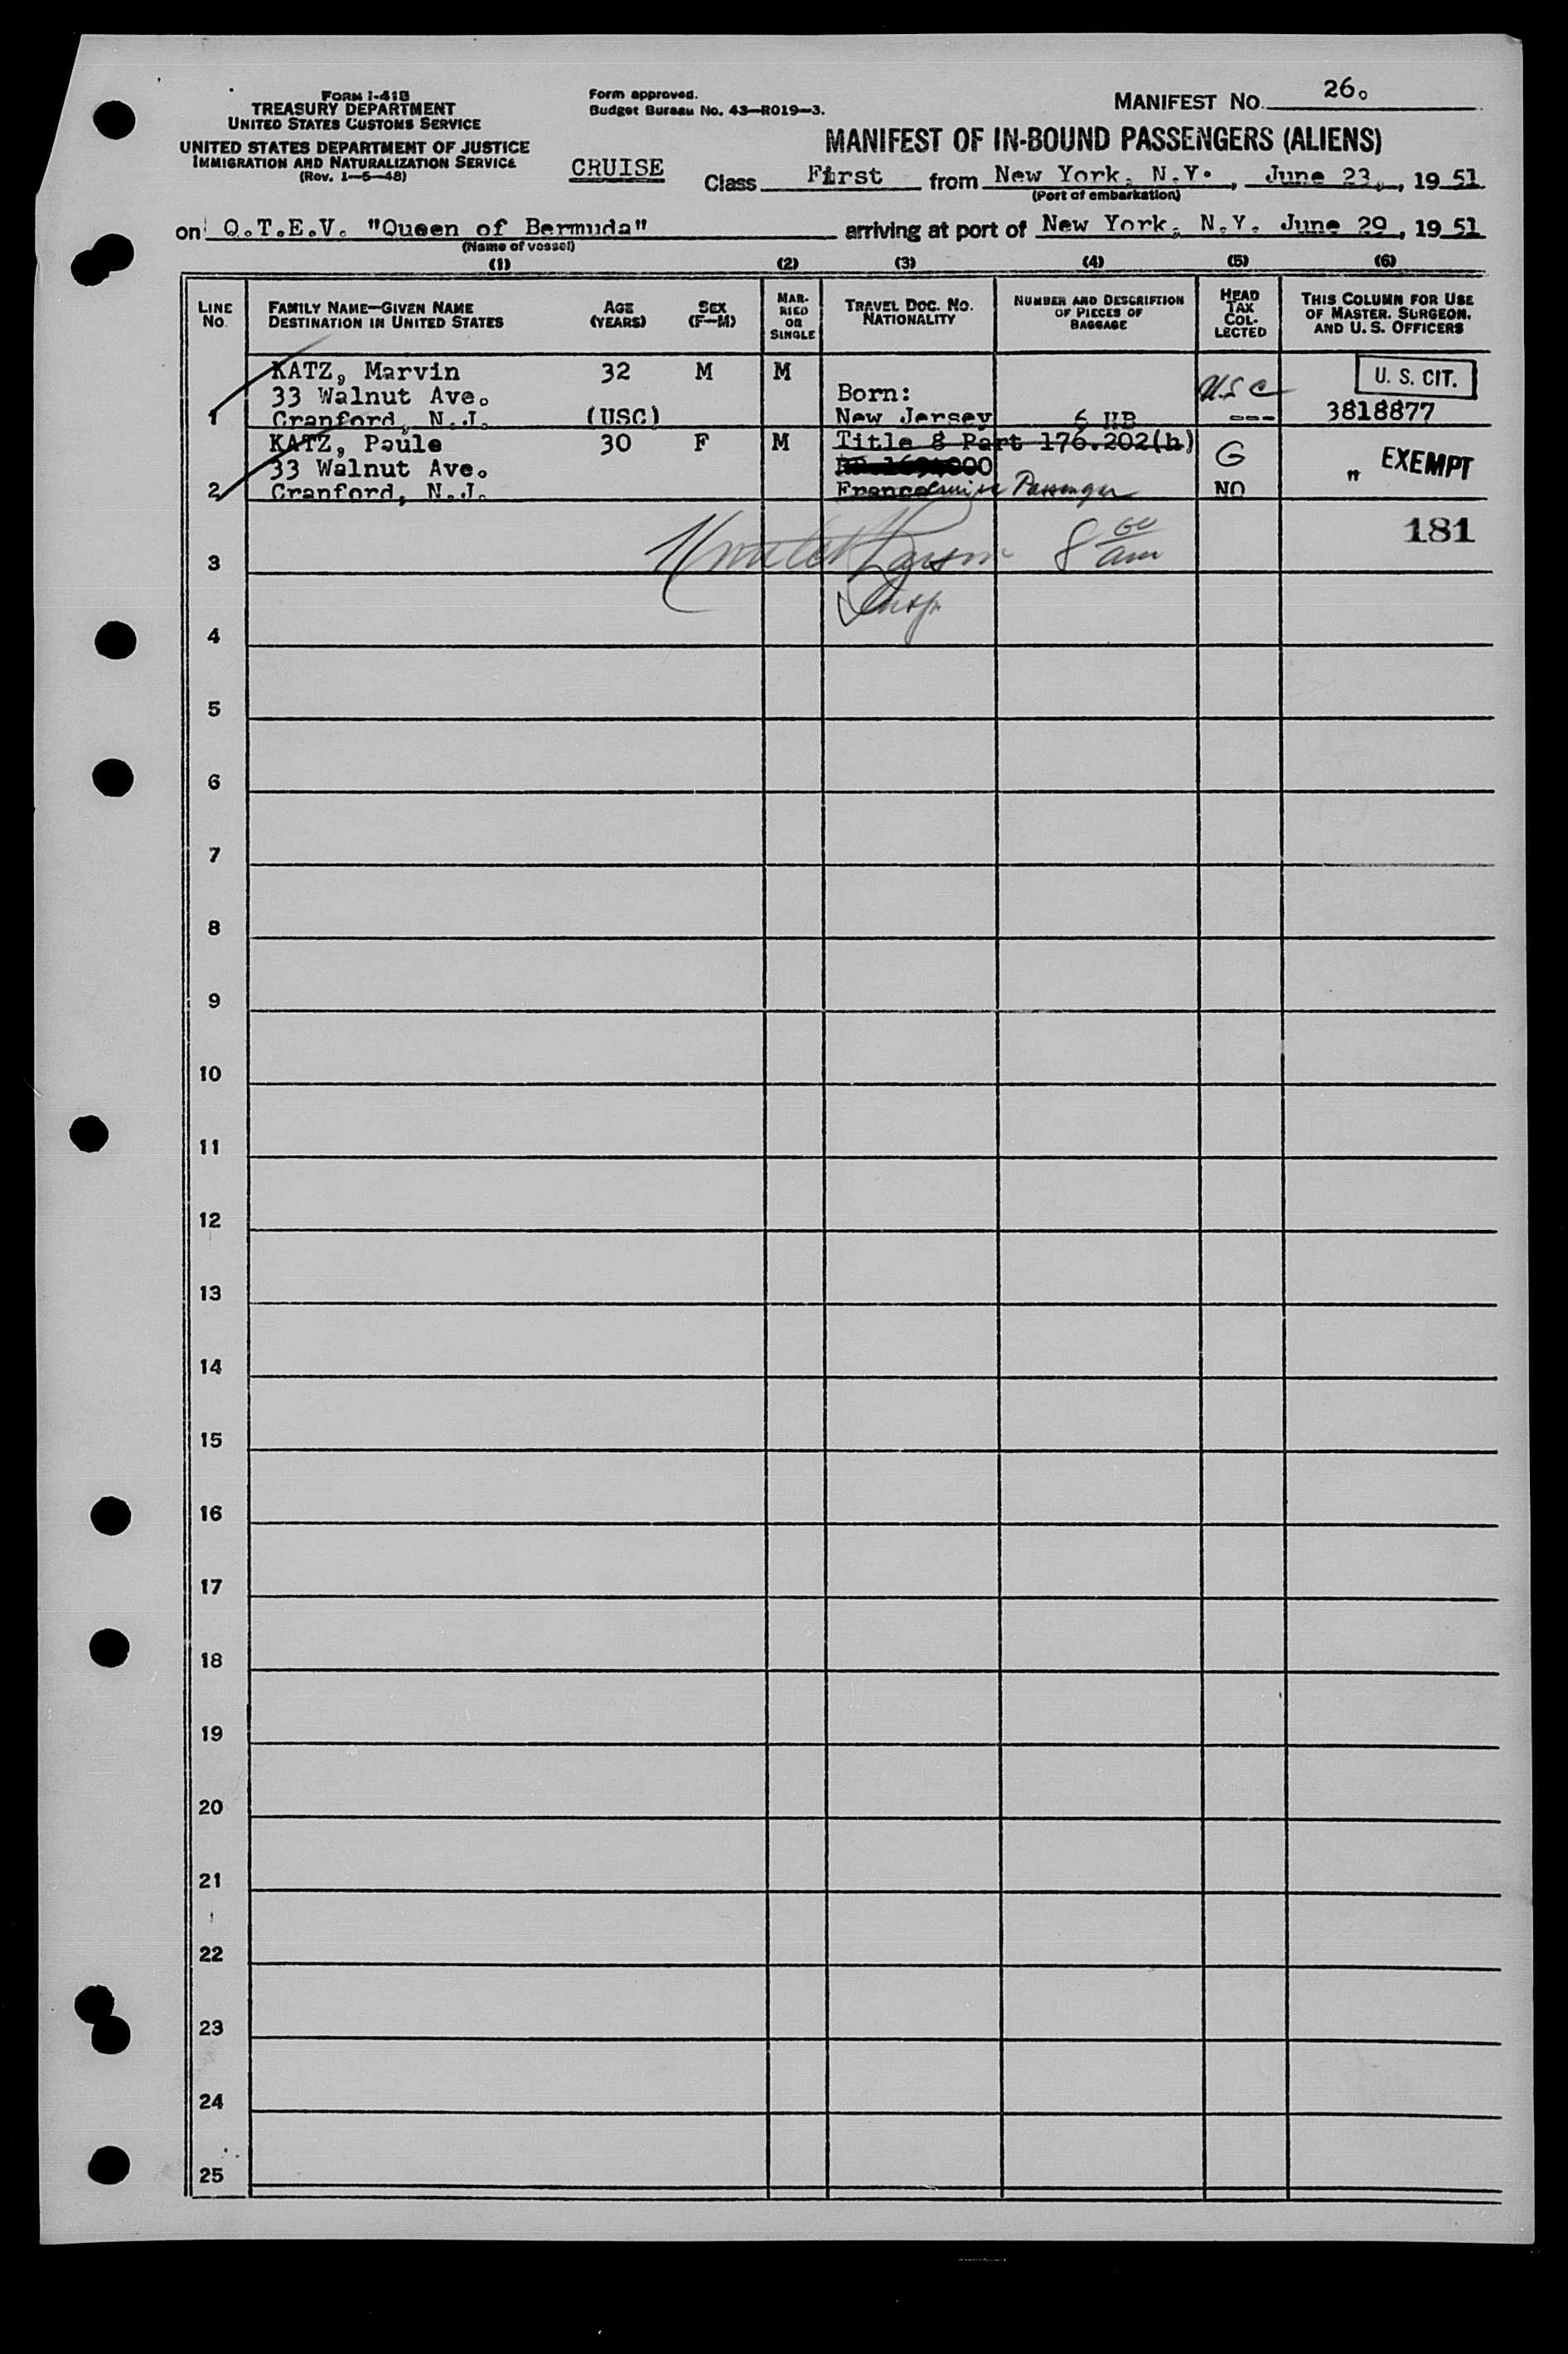 FORM I-418
TREASURY DEPARTMENT
UNITED STATES CUSTOMS SERVICE
UNITED STATES DEPARTMENT OF JUSTICE
IMMIGRATION AND NATURALIZATION SERVICE
(Rev. 1-5-48)
Form approved.
Budget Bureau No. 43-R019-3.
MANIFEST NO. 26.
MANIFEST OF IN-BOUND PASSENGERS (ALIENS)
CRUISE Class First from New York, N.Y., June 23, 1951
(Port of embarkation)
on Q.T.E.V. "Queen of Bermuda" arriving at port of New York, N.Y. June 29, 1951
(Name of vessel)
(1) (2) (3) (4) (5) (6)
LINE NO. FAMILY NAME—GIVEN NAME DESTINATION IN UNITED STATES AGE (YEARS) SEX (F—M) MARRIED OR SINGLE TRAVEL DOC. NO. NATIONALITY NUMBER AND DESCRIPTION OF PIECES OF BAGGAGE HEAD TAX COLLECTED THIS COLUMN FOR USE OF MASTER, SURGEON, AND U. S. OFFICERS
KATZ, Marvin 32 M M U. S. CIT.
33 Walnut Ave. Born: USC
1 Cranford, N.J. (USC) New Jersey 6 HB --- 3818877
KATZ, Paule 30 F M Title 8 Part 176.202(h) G
33 Walnut Ave. " EXEMPT
2 Cranford, N.J. France Cruise Passenger NO
181
3 8 00 am
Insp.
4
5
6
7
8
9
10
11
12
13
14
15
16
17
18
19
20
21
22
23
24
25